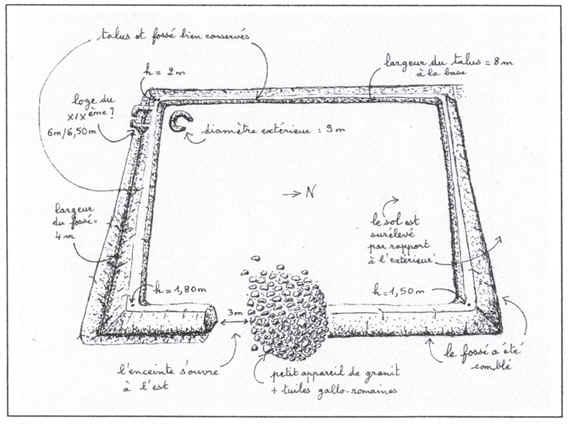 talus et fossé bien conservés
h = 2m
largeur du talus = 8m
à la base
loge du
XIXème ?
6m/6,50m
diamètre extérieur : 9m
→ N
largeur
du fossé =
4m
le sol est
surélevé
par rapport
à l'exterieur
h = 1,80m
h = 1,50m
3m
l'enceinte s'ouvre
à l'est
petit appareil de granit
+ tuiles gallo-romaines
le fossé a été
comblé